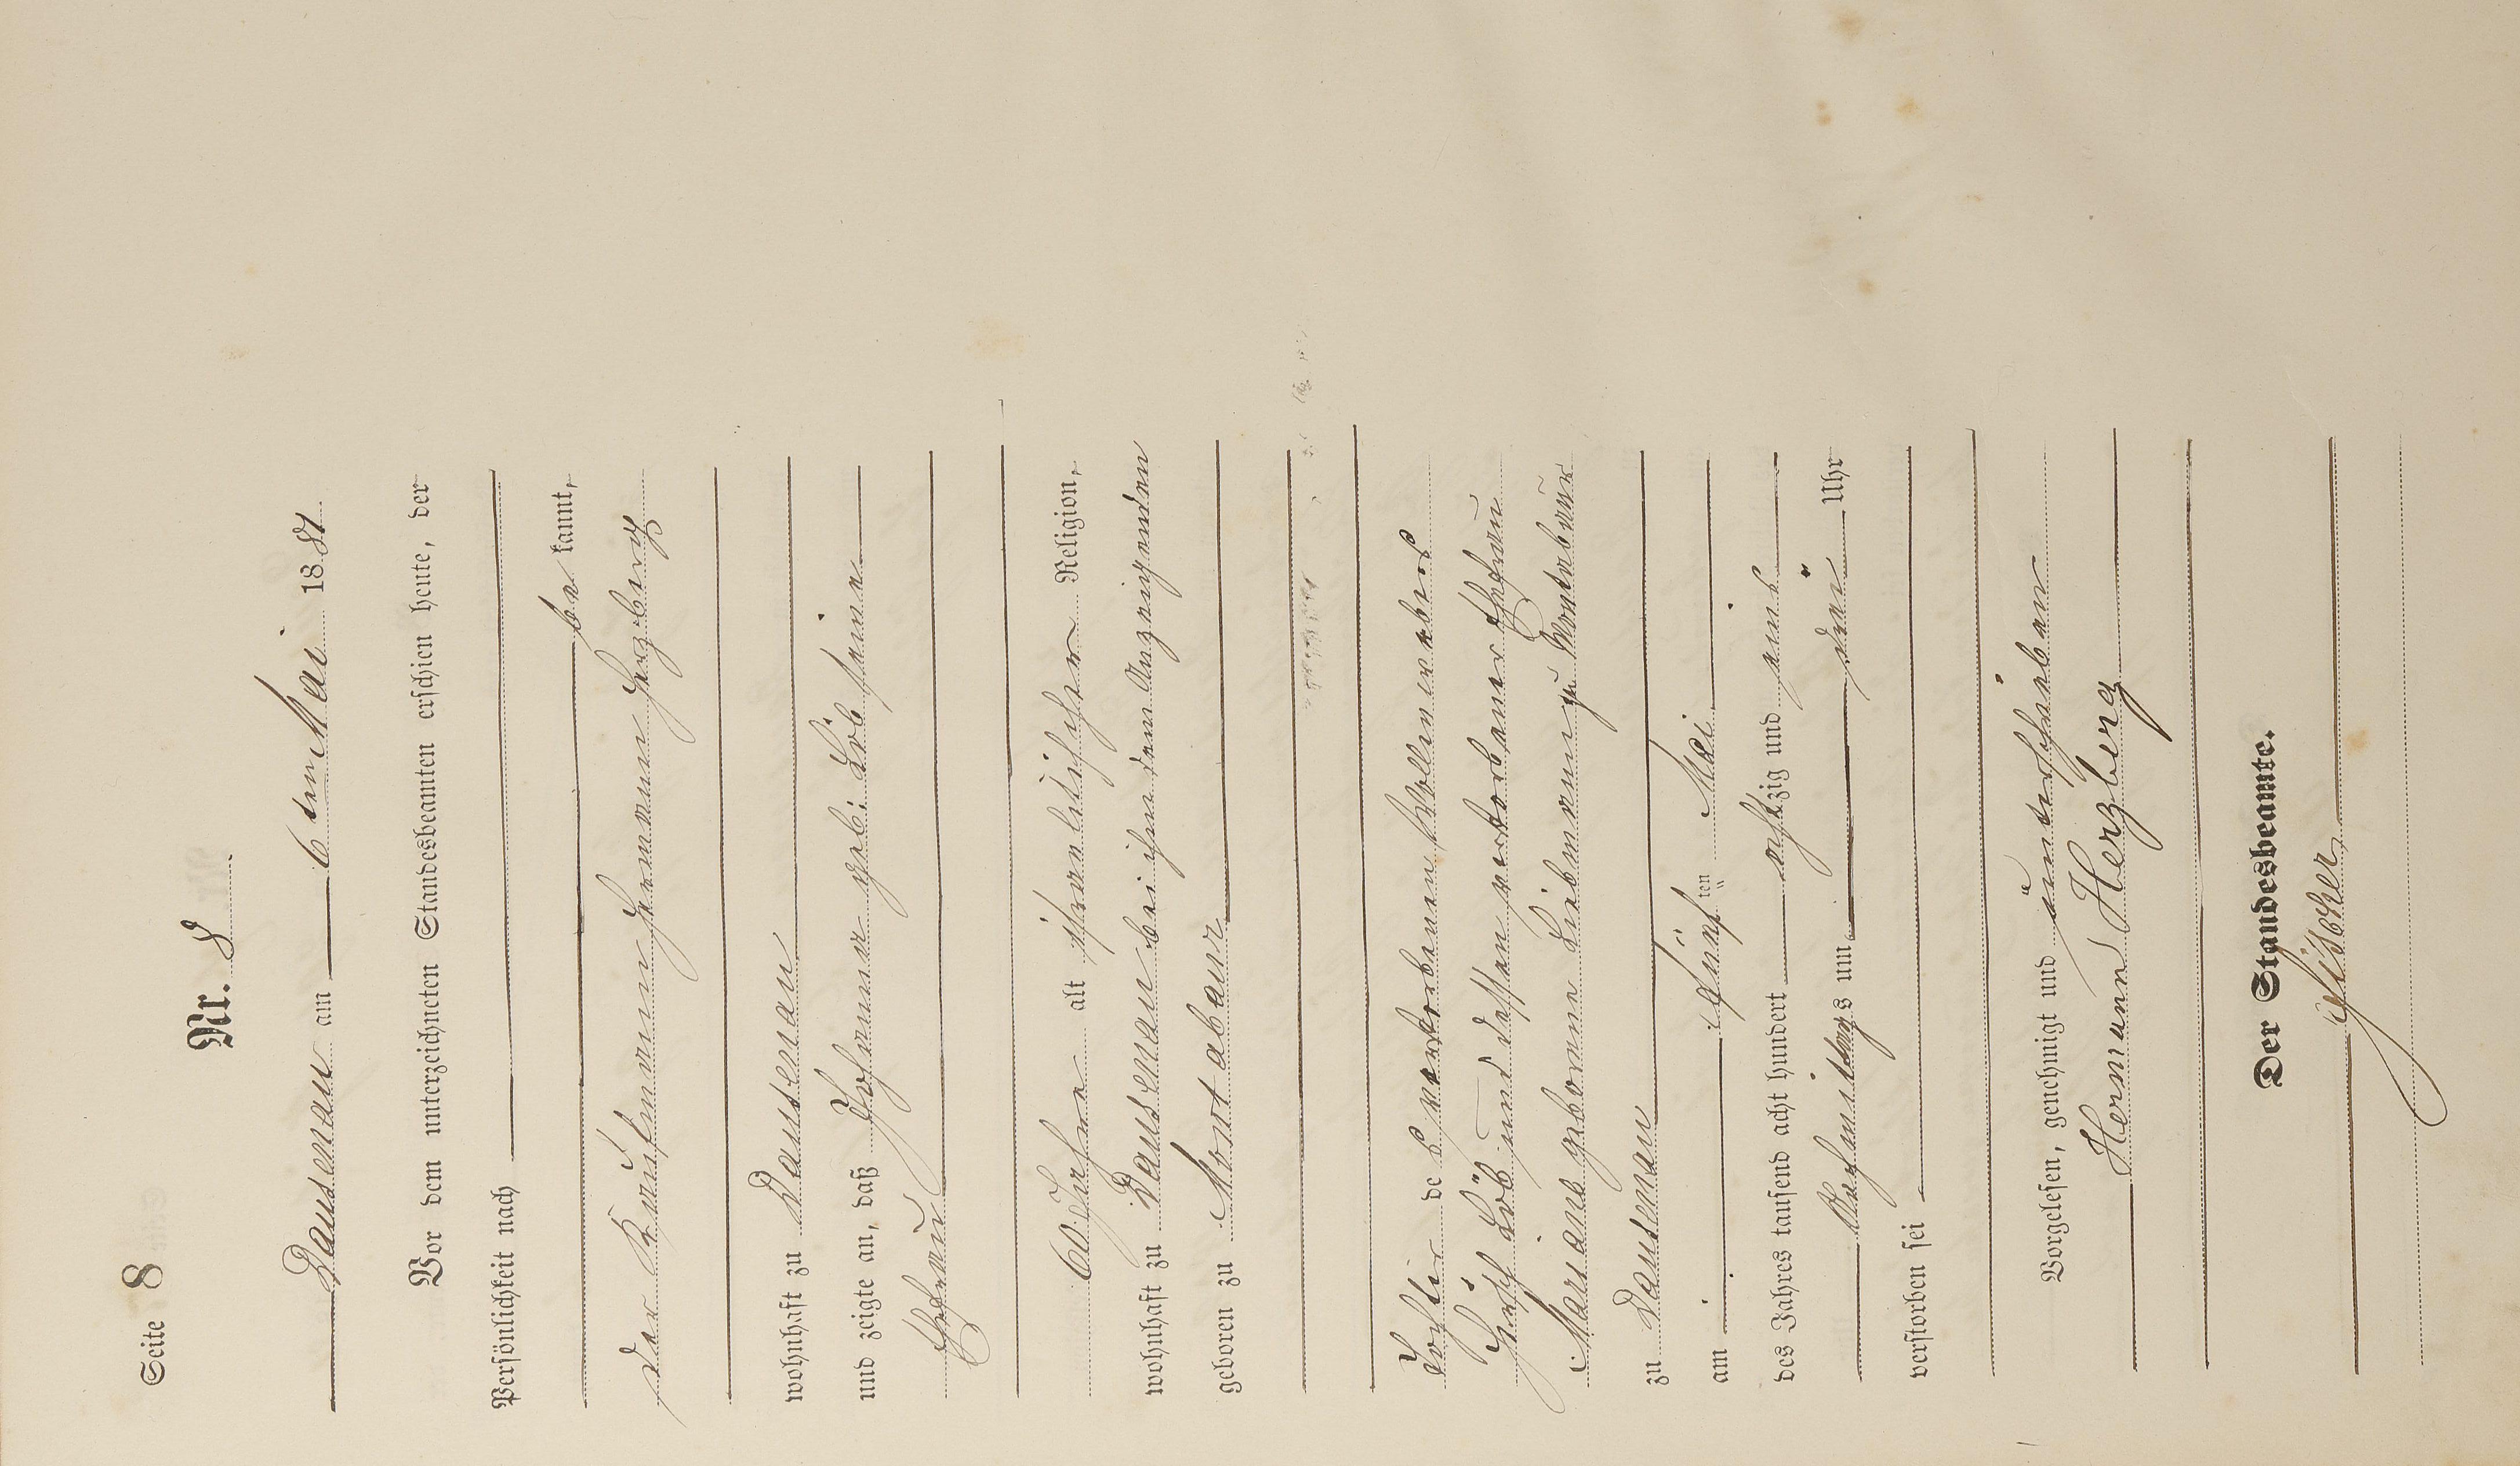 Seite 8
Nr. 8
Dausenau am 6ten Mai 1881
Vor dem unterzeichneten Standesbeamten erschien heute, der
Persönlichkeit nach
be kannt,
der Kaufmann Hermann Herzberg
wohnhaft zu Dausenau
und zeigte an, daß Johanna geb: Löb seine
Ehefrau
60 Jahre alt israelitischer Religion,
wohnhaft zu Dausenau bei ihm dem Anzeigenden
geboren zu Montabaur
Tochter de s verstorbenen Wollenwebers
Hirsch Löb und dessen verstorbener Ehefrau
Mariane geborene Liebmann zu Montabaur
zu Dausenau
am fünf ten Mai
des Jahres tausend acht hundert achtzig und eins
Nachmittags um drei Uhr
verstorben sei
Vorgelesen, genehmigt und unterschrieben
Hermann Herzberg
Der Standesbeamte.
Fischer